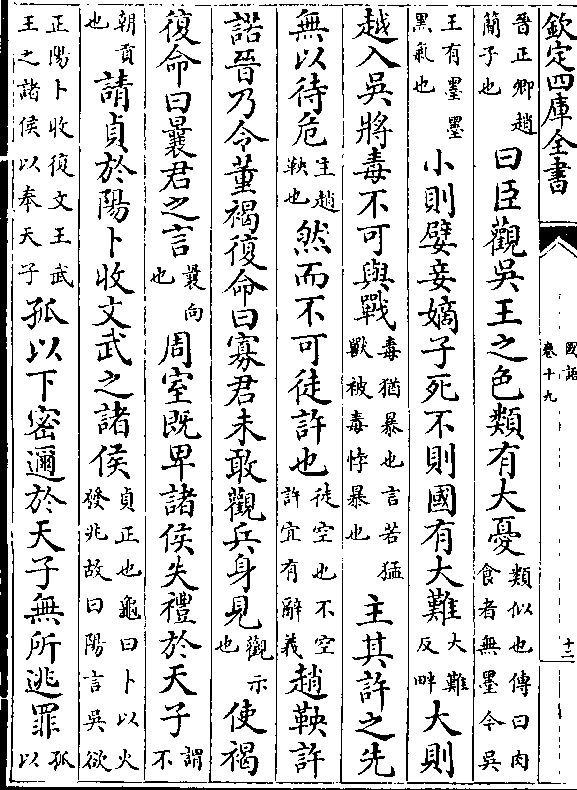 欽定四庫全書
國語
卷十九
十二
晉正卿趙簡子也曰臣觀吳王之色類有大憂類似也傳曰肉食者無墨今吳
王有墨墨黑氣也小則嬖妾嫡子死不則國有大難大難反畔大則
越入吳將毒不可與戰毒猶暴也言若猛獸被毒悖暴也主其許之先
無以待危主趙鞅也然而不可徒許也徒空也不空許宜有辭義趙鞅許
諾晉乃令董褐復命曰寡君未敢觀兵身見觀示也使褐
復命曰曩君之言曩向也周室既卑諸侯失禮於天子謂不
朝貢也請貞於陽卜收文武之諸侯貞正也龜曰卜以火發兆故曰陽言吳欲
正陽卜收復文王武王之諸侯以奉天子孤以下密邇於天子無所逃罪孤以